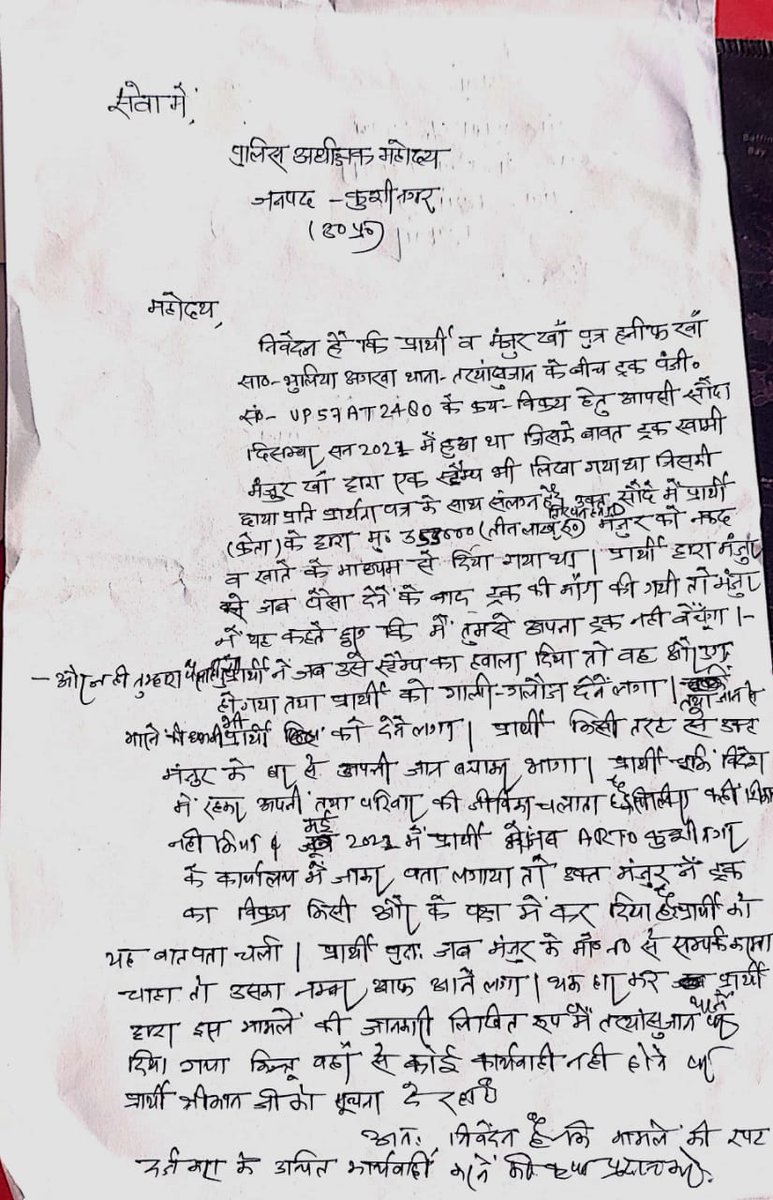 सेवा में,
पुलिस अधीक्षक महोदय
जनपद - कुशीनगर
(उ० प्र०)
महोदय,
निवेदन है कि प्रार्थी व मंजुर खाँ पुत्र हनीफ खाँ
सा०- भुलिया अगरवा थाना- तरयांसुजान के बीच ट्रक पंजी०
सं०- UP57AT2480 के क्रय-विक्रय हेतु आपसी सौदा
दिसम्बर सन 2021 में हुआ था जिसके बावत ट्रक स्वामी
मंजुर खाँ द्वारा एक स्टैम्प भी लिखा गया था जिसकी
छाया प्रति प्रार्थना पत्र के साथ संलग्न है उक्त सौदे में प्रार्थी
(क्रेता) के द्वारा मु० 353000 (तीन लाख रू०) मंजुर को नकद
व खाते के माध्यम से दिया गया था | प्रार्थी द्वारा मंजुर
से जब पैसा देने के बाद ट्रक की मांग की गयी तो मंजुर
ने यह कहते हुए कि मैं तुमसे अपना ट्रक नही बेचूंगा |-
- और न ही तुम्हारा प्रार्थी ने जब उसे स्टैम्प का हवाला दिया तो वह
हो गया तथा प्रार्थी को गाली-गलौज देने लगा | तथा जान से
मारने की धमकी भी प्रार्थी को देने लगा | प्रार्थी किसी तरह से उक्त
मंजुर के घर से अपनी जान बचाकर भागा | प्रार्थी चूंकि विदेश
में रहकर अपनी तथा परिवार की जीविका चलाता है इसलिए कहीं
नही किया मई 2022 में प्रार्थी ने जब ARTO कुशीनगर
के कार्यालय में जाकर पता लगाया तो उक्त मंजुर ने ट्रक
का विक्रय किसी और के पक्ष में कर दिया है प्रार्थी को
यह बात पता चली | प्रार्थी पुनः जब मंजुर के मो० no से सम्पर्क करना
चाहा तो उसका नम्बर आफ आने लगा | थक हार कर प्रार्थी
द्वारा इस मामले की जानकारी लिखित रूप में तरयांसुजान थाने पर
दिया गया किन्तू वहाँ से कोई कार्यवाही नही होने पर
प्रार्थी श्रीमान जी को सूचना दे रहा है
अतः निवेदन है कि मामले की रपट
दर्ज करा के उचित कार्यवाही करने की कृपा प्रदान करे.